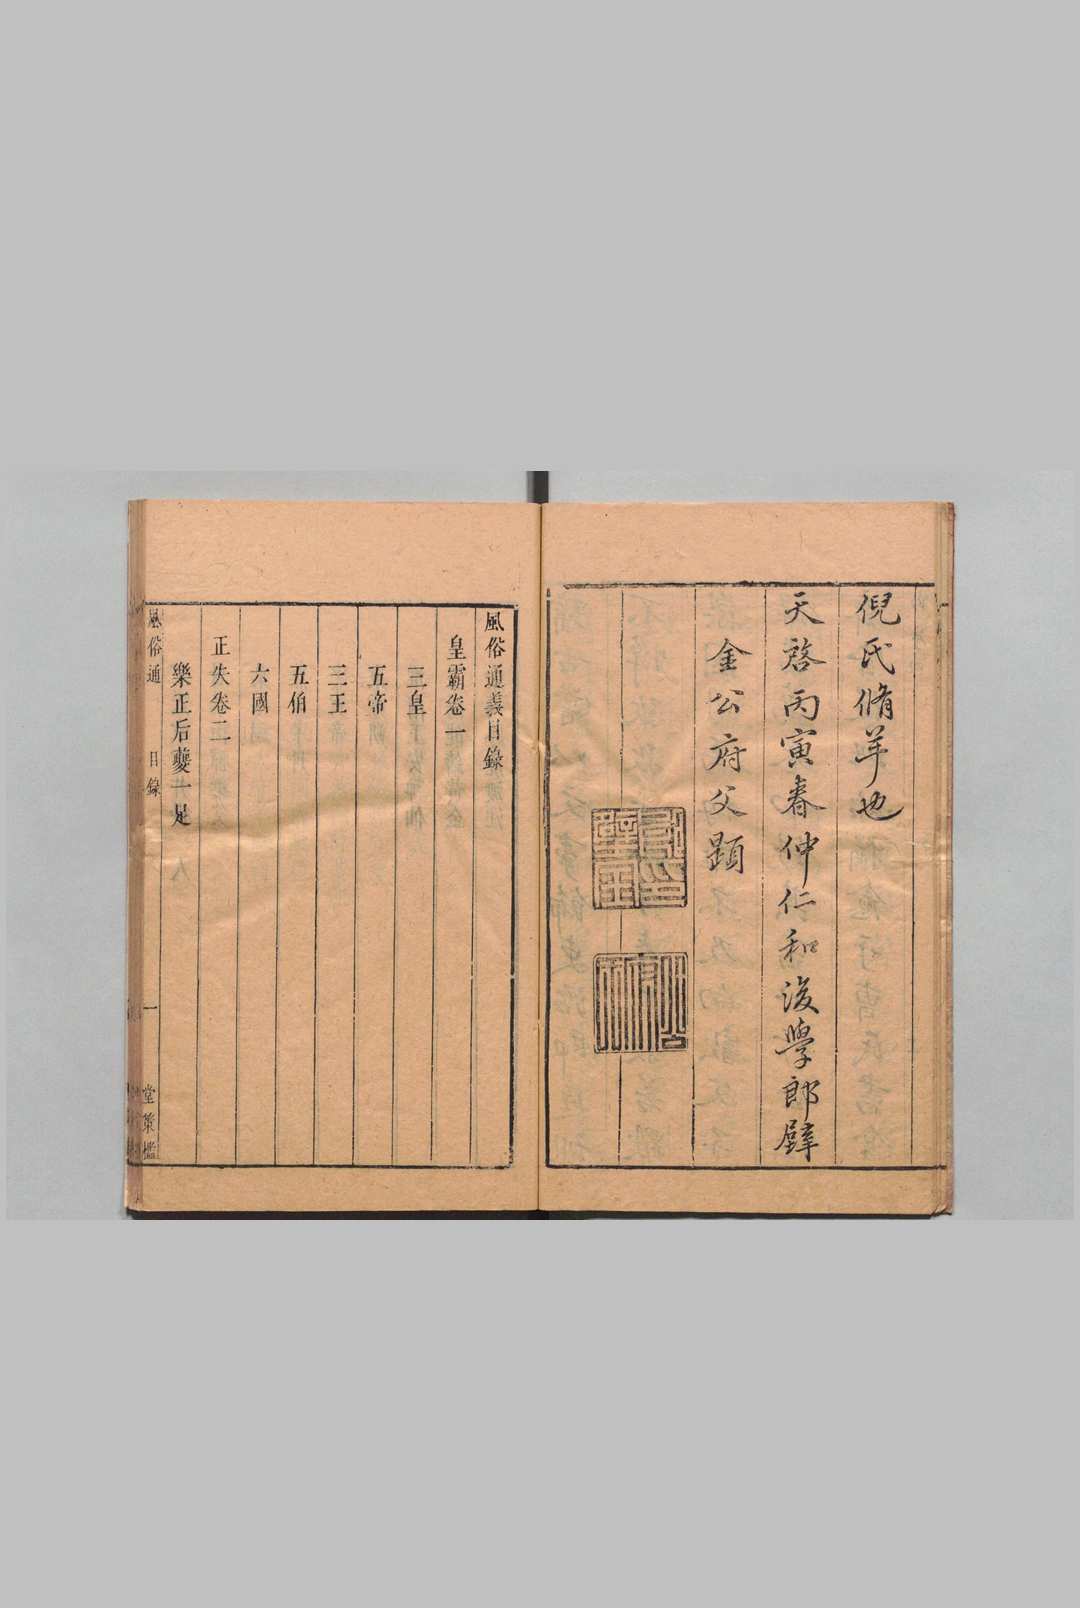 倪氏脩羊也
天啓丙寅春仲仁和後學郎璧
金公府父題
風俗通義目錄
皇霸卷一
三皇
五帝
三王
五伯
六國
正失卷二
樂正后夔一足
風俗通
目錄
一
堂策檻